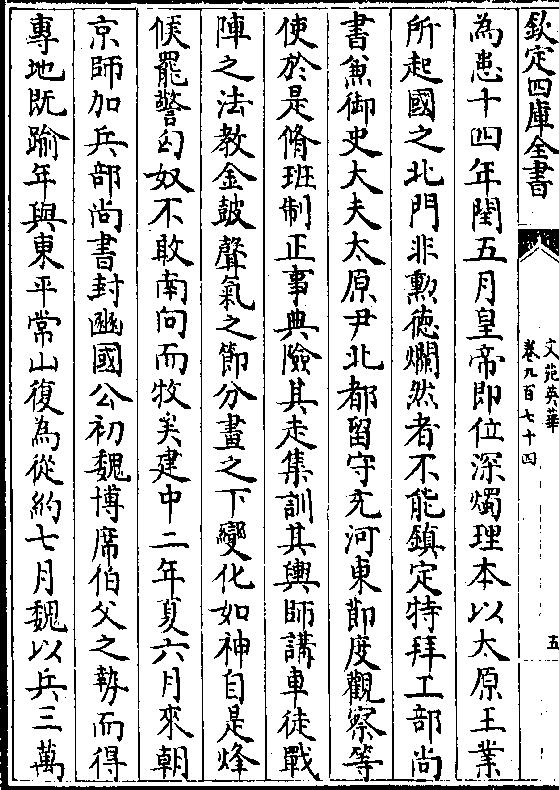 欽定四庫全書
文苑英華
卷九百七十四
五
為患十四年閏五月皇帝即位深燭理本以太原王業
所起國之北門非勲徳爛然者不能鎮定特拜工部尚
書兼御史大夫太原尹北都留守充河東節度觀察等
使於是脩班制正事典險其走集訓其輿師講車徒戰
陣之法教金鼓聲氣之節分畫之下變化如神自是烽
候罷警匈奴不敢南向而牧矣建中二年夏六月來朝
京師加兵部尚書封豳國公初魏博席伯父之勢而得
專地既踰年與東平常山復為從約七月魏以兵三萬